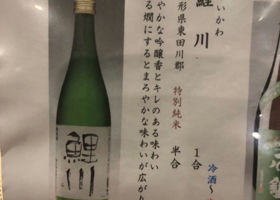 いかわ
鯉川
形県東田川郡 特別純米
やかな吟醸香とキレのある味わい
る燗にするとまろやかな味わいが広がり
1合
半合
冷酒~
鯉川